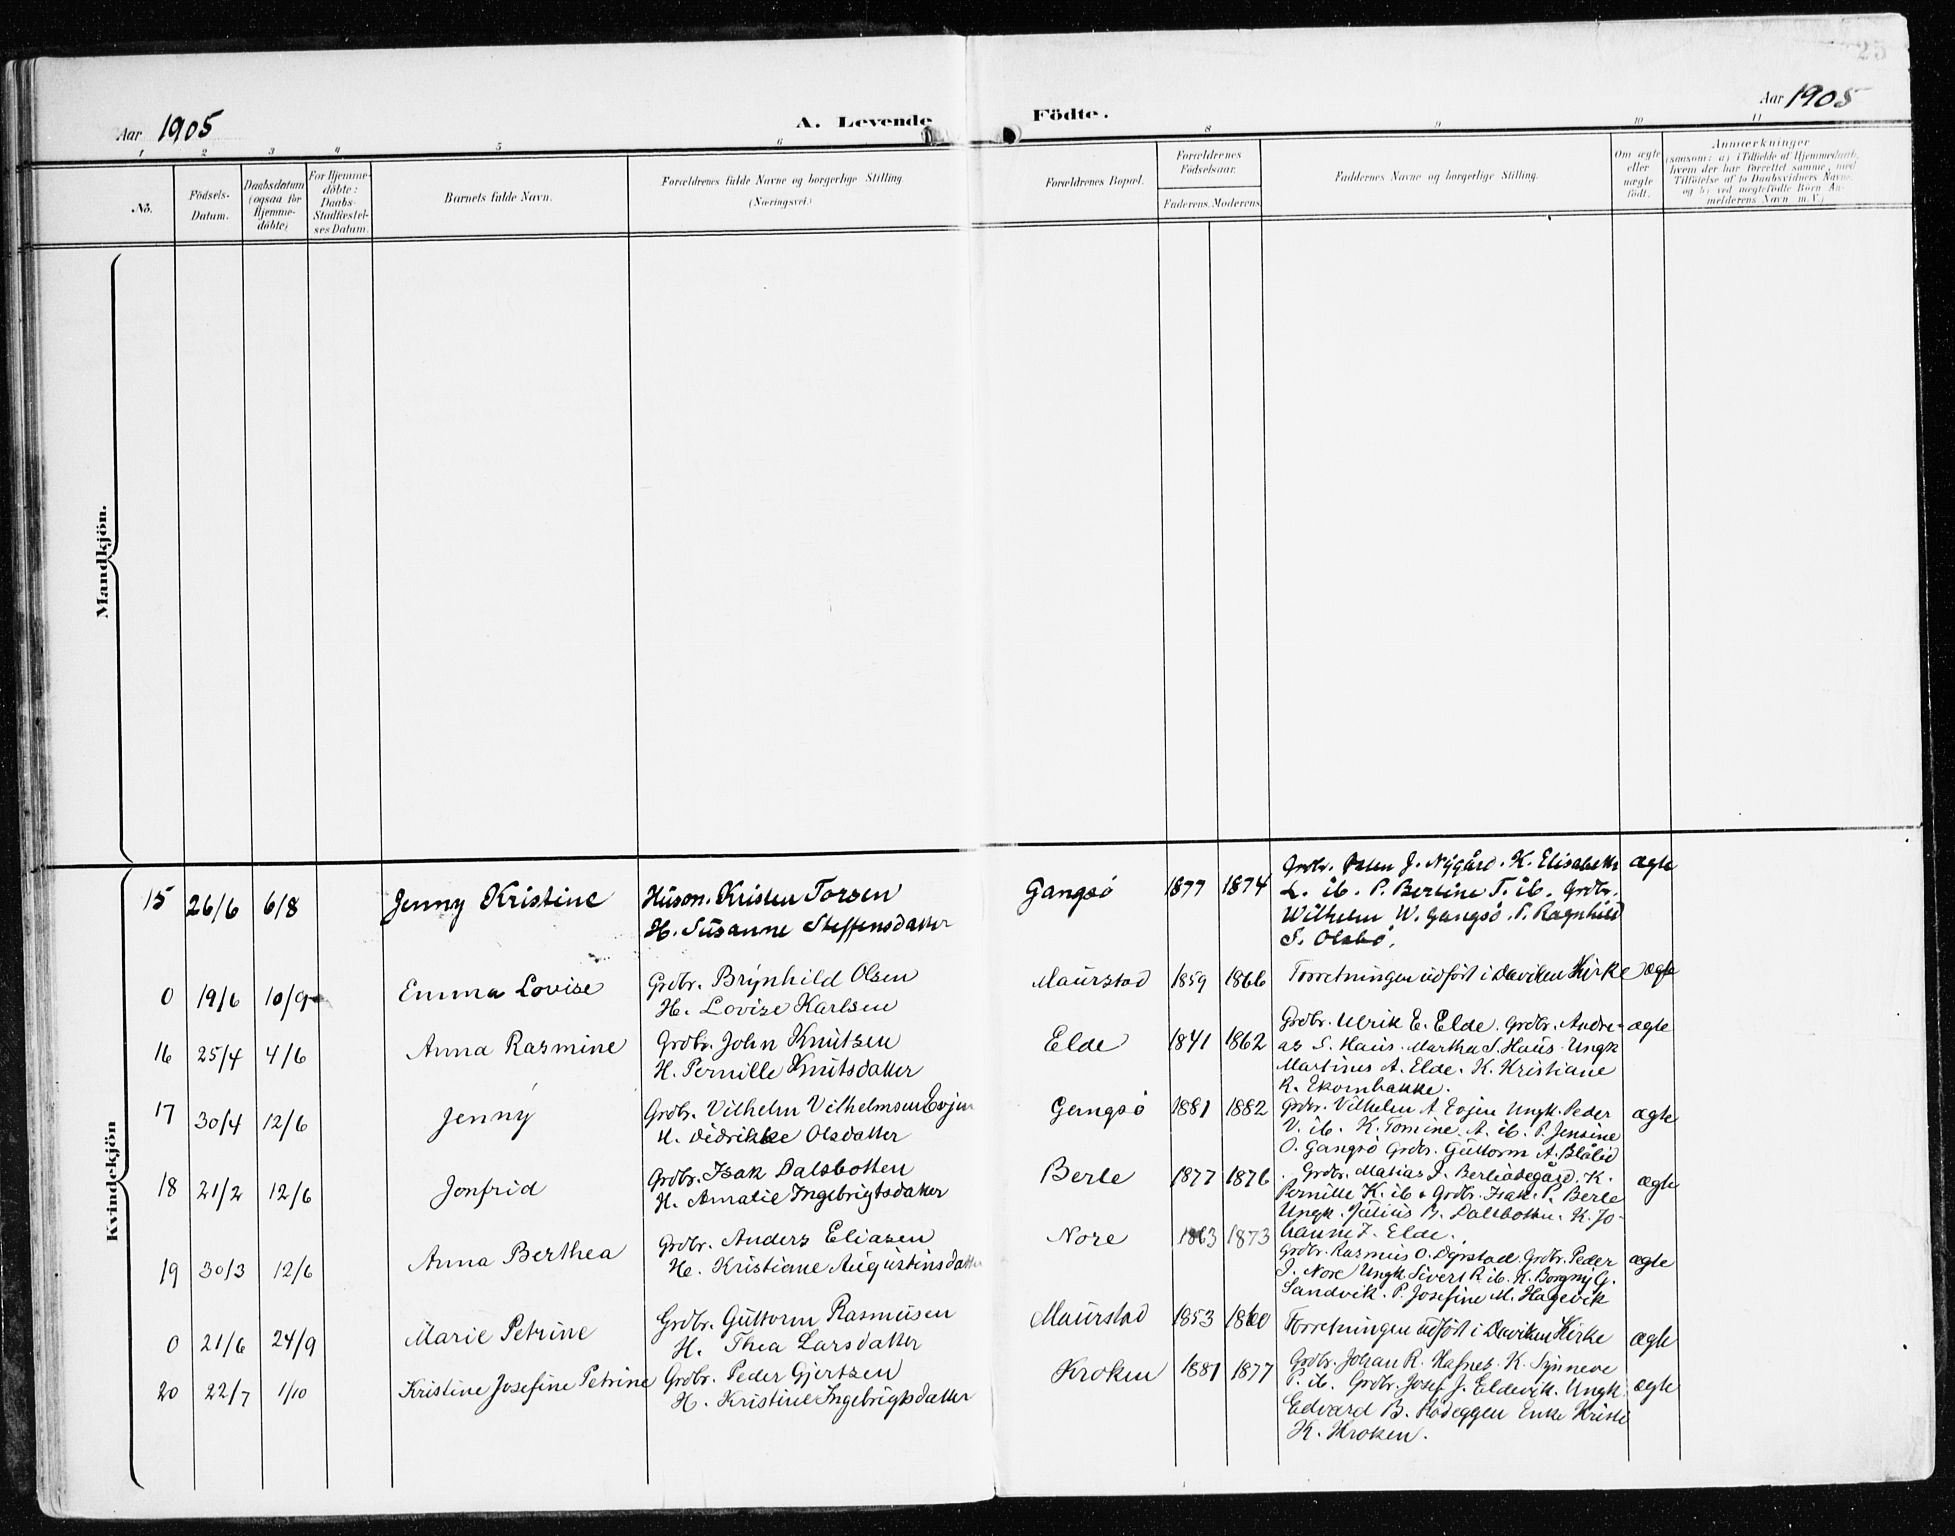 25
Aar 1905
A. Levende
Födte.
Aar 1905
1 2 3 4 5 6 8 9 10 11
No.
Födsels-
Datum.
Daabsdatum
(ogsaa for
Hjemme-
döbte)
For Hjemme-
döbte:
Daabs-
Stadfæstel-
ses Datum.
Barnets fulde Navn.
Forældrenes fulde Navne og borgerlige Stilling
(Næringsvei.)
Forældrenes Bopæl.
Forældrenes
Födselsaar.
Faderens. Moderens.
Faddernes Navne og borgerlige Stilling.
Om ægte
eller
uægte
födt.
Anmærkninger
(saasom: a) i Tilfælde af Hjemmedaab,
hvem der har forrettet samme, med
Tilföielse af to Daabsvidners Navne,
og b) ved uægtefödte Börn An-
melderens Navn m.V.)
Mandkjön.
Kvindekjön
15 26/6 6/8 Jenny Kristine
Husm. Kristen Torsen
H. Susanne Steffensdatter
Gangsö 1877 1874
Grdbr. Peter J. Nygård. K. Elisabeth
L. ib. P. Bertine T. ib. Grdbr.
Wilhelm W. Gangsö. P. Ragnhild
S. Olsbö.
ægte
0 19/6 10/9 Emma Lovise
Grdbr. Brynhild Olsen
H. Lovise Karlsen
Maurstad 1859 1866
Forretningen udfört i Daviken Kirke
ægte
16 25/4 4/6 Anna Rasmine
Grdbr. John Knutsen
H. Pernille Knutsdatter
Elde 1841 1862
Grdbr. Ulrik E. Elde. Grdbr. Andre-
as S. Haus. Martha S. Haus. Ungk
Martinus A. Elde. K. Kristiane
R. Ekornbakke.
ægte
17 30/4 12/6 Jenny
Grdbr. Vilhelm Vilhelmsen Evjen
H. Didrikke Olsdatter
Gangsö 1881 1882
Grdbr. Vilhelm A Evjen Ungk. Peder
V. ib. K. Tomine A. ib. P. Jensine
O. Gangsö Grdbr. Guttorm A. Blålid
ægte
18 21/2 12/6 Jonfrid
Grdbr. Isak Dalsbotten
H. Amalie Ingebrigtsdatter
Berle 1877 1876
Grdbr. Matias J. Berleödegård. K.
Pernille K. ib. Grdbr. Isak P. Berle
Ungk. Julius B. Dalsbotten. K. Jo-
hanne I. Elde.
ægte
19 30/3 12/6 Anna Berthea
Grdbr. Anders Eliasen
H. Kristiane Augustinsdatter
Nore 1863 1873
Grdbr. Rasmus O. Dyrstad Grdbr. Peder
J. Nore Ungk. Sivert R. ib. K. Borgny G.
Sandvik. P. Josefine M. Hagevik
ægte
0 21/6 24/9 Marie Petrine
Grdbr. Guttorm Rasmusen
H. Thea Larsdatter
Maurstad 1853 1860
Forretningen udfört i Daviken Kirke
ægte
20 22/7 1/10 Kristine Josefine Petrine
Grdbr. Peder Gjertsen
H. Kristine Ingebrigtsdatter
Kroken 1881 1877
Grdbr. Johan R. Hafnes. K. Synneve
P. ib. Grdbr. Josef J. Eldevik. Ungk.
Edvard B. Rödeggen Enke Kristi
K. Kroken.
ægte